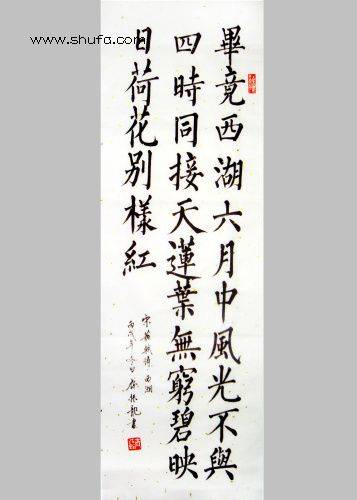 www.shufa.com
畢竟西湖六月中風光不與
四時同接天蓮葉無窮碧映
日荷花别樣紅
西湖
丙戌年
書